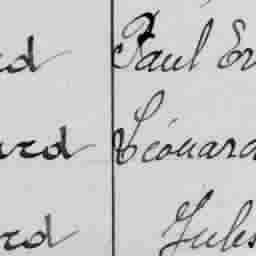 rd Paul Er
ard Léonard
rd Jules